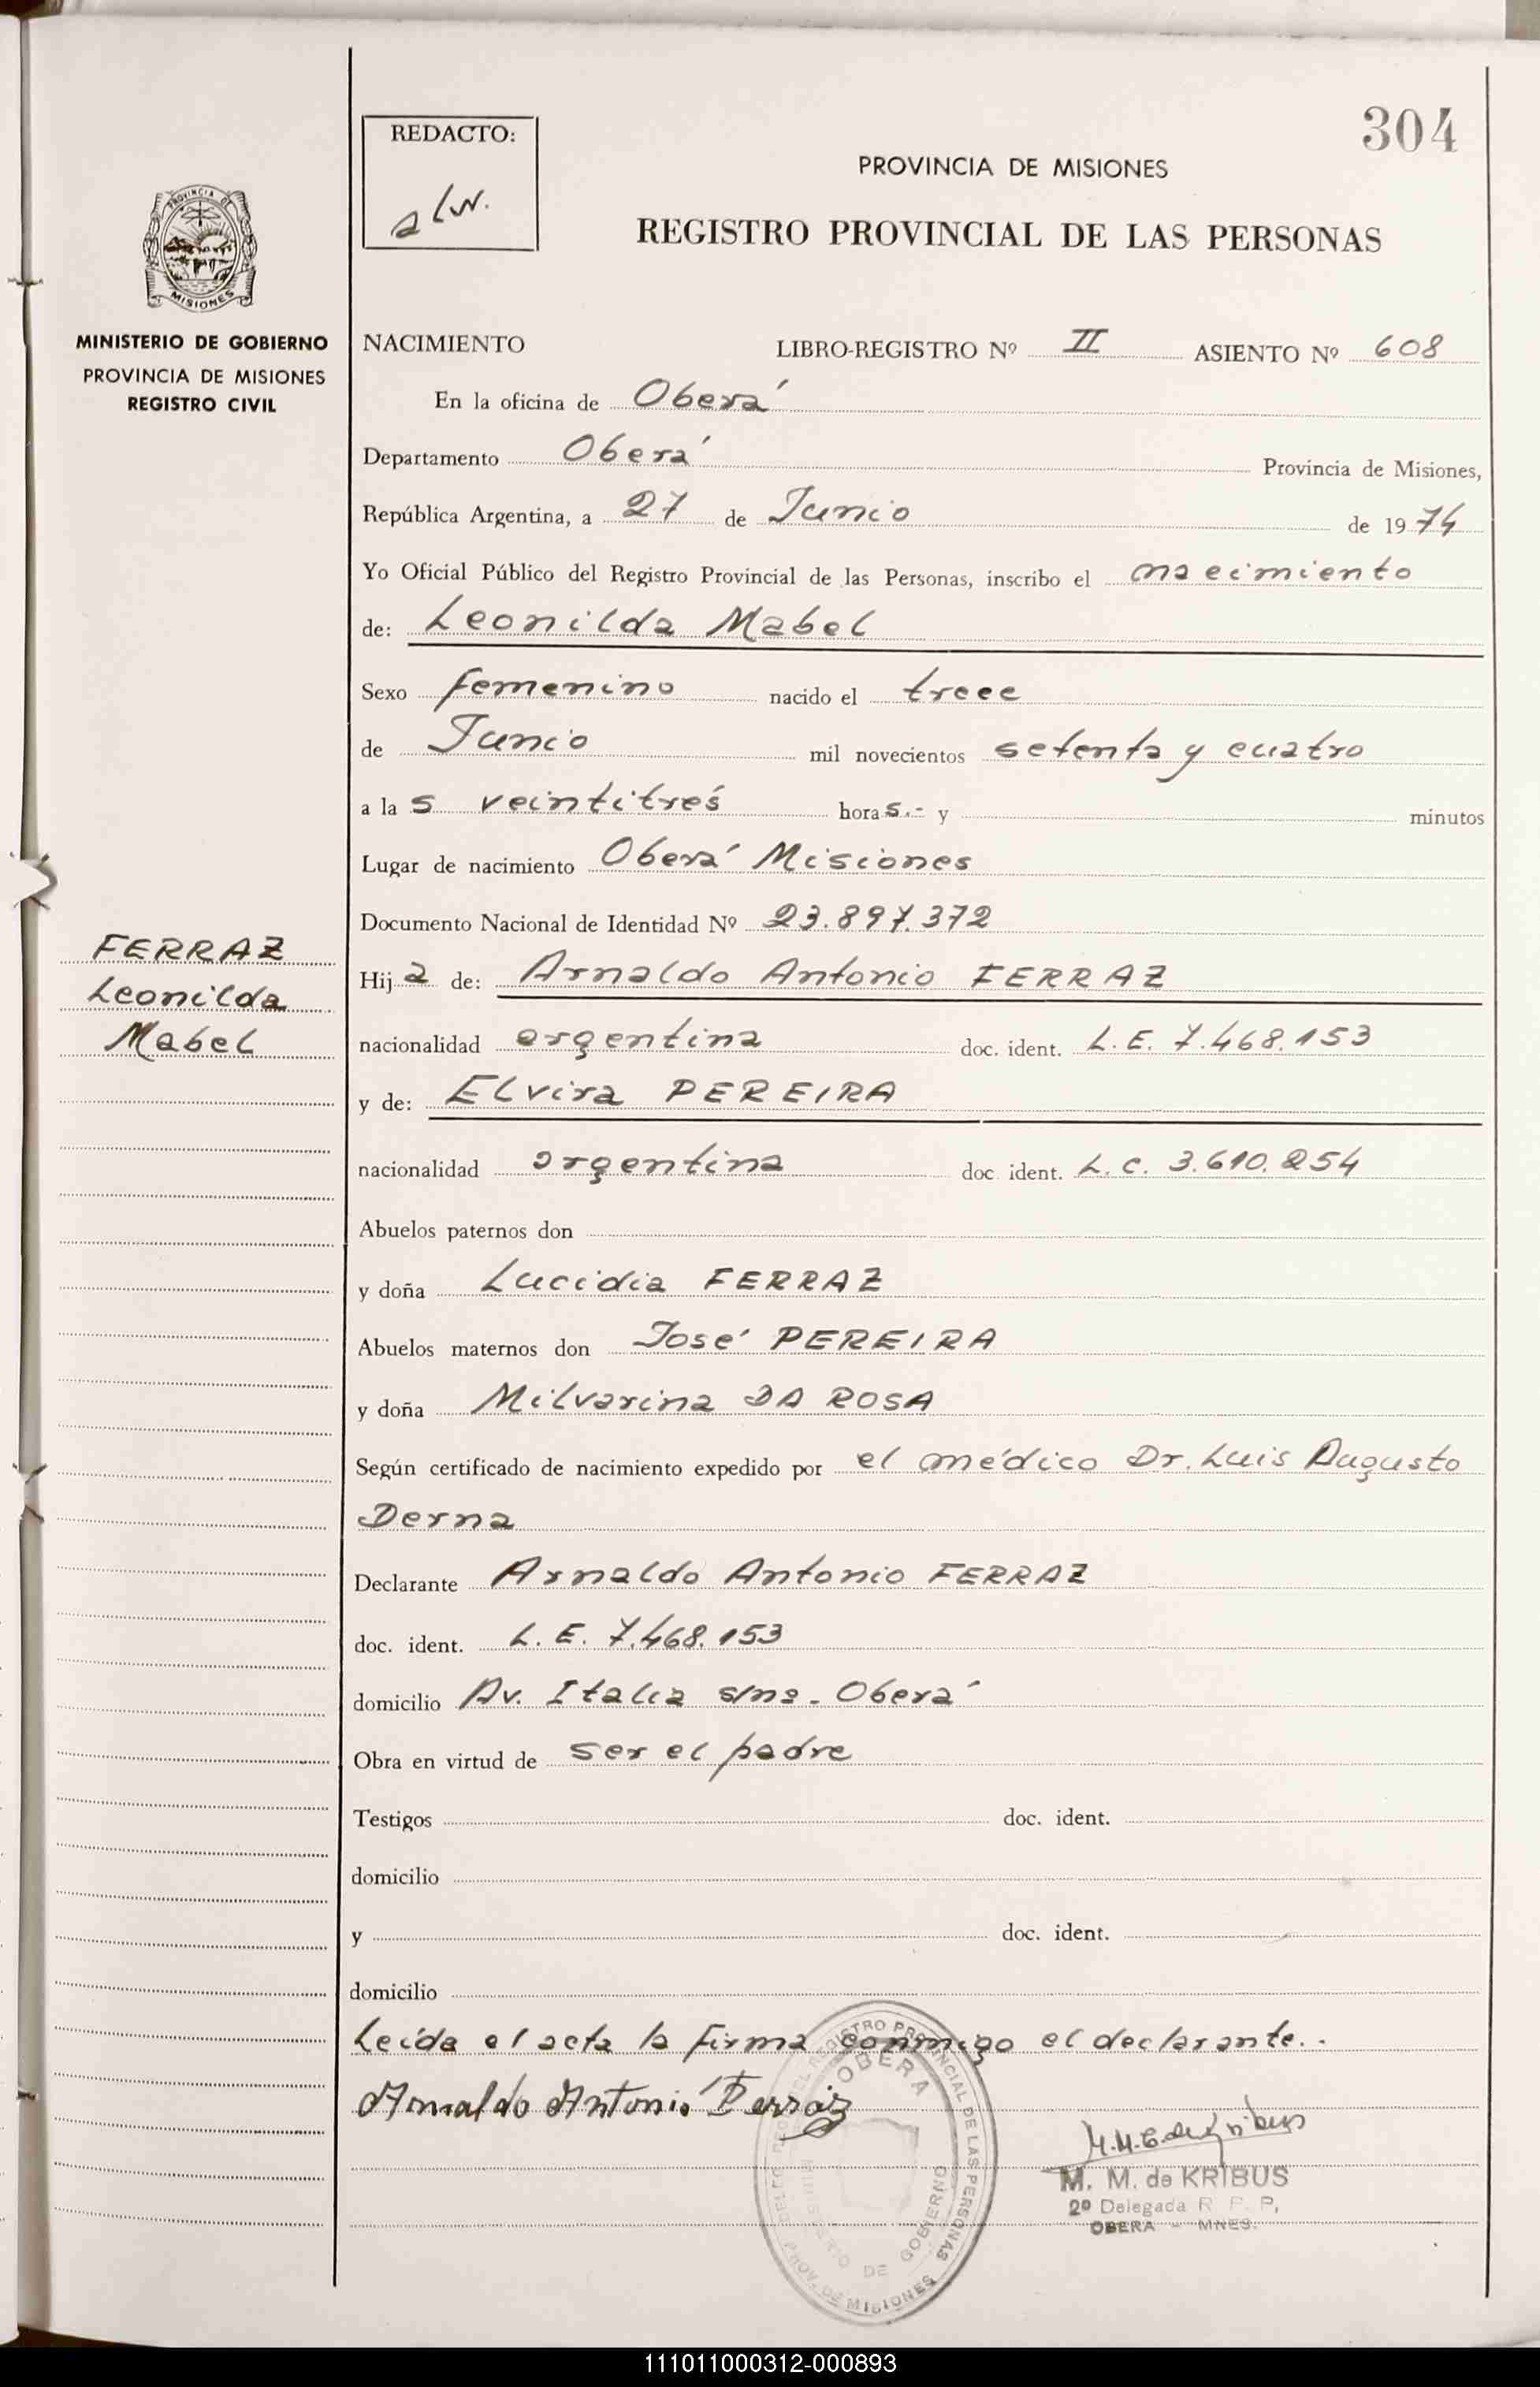 304
REDACTO:
PROVINCIA DE MISIONES
REGISTRO PROVINCIAL DE LAS PERSONAS
PROVINCIA DE
MISIONES
MINISTERIO DE GOBIERNO
PROVINCIA DE MISIONES
REGISTRO CIVIL
NACIMIENTO LIBRO-REGISTRO Nº II ASIENTO Nº 608
En la oficina de Oberá
Departamento Oberá Provincia de Misiones,
República Argentina, a 27 de Junio de 1974
Yo Oficial Público del Registro Provincial de las Personas, inscribo el nacimiento
de: Leonilda Mabel
Sexo femenino nacido el trece
de Junio mil novecientos setenta y cuatro
a las veintitrés horas.- y minutos
Lugar de nacimiento Oberá Misiones
Documento Nacional de Identidad Nº 23.897.372
FERRAZ
Leonilda
Mabel
Hija de: Arnaldo Antonio FERRAZ
nacionalidad argentina doc. ident. L.E. 7.468.153
y de: Elvira PEREIRA
nacionalidad argentina doc. ident. L.C. 3.610.254
Abuelos paternos don
y doña Lucidia FERRAZ
Abuelos maternos don José PEREIRA
y doña Milvarina DA ROSA
Según certificado de nacimiento expedido por el médico Dr. Luis Augusto
Derna
Declarante Arnaldo Antonio FERRAZ
doc. ident. L.E. 7.468.153
domicilio Av. Italia s/nº - Oberá
Obra en virtud de ser el padre
Testigos doc. ident.
domicilio
y doc. ident.
domicilio
Leída el acta la firma conmigo el declarante.-
Arnaldo Antonio Ferraz
REGISTRO PROVINCIAL DE LAS PERSONAS
OBERA
MINISTERIO DE GOBIERNO
PROV. DE MISIONES
M. M. de KRIBUS
2º Delegada R. P. P,
OBERA - MNES.
111011000312-000893